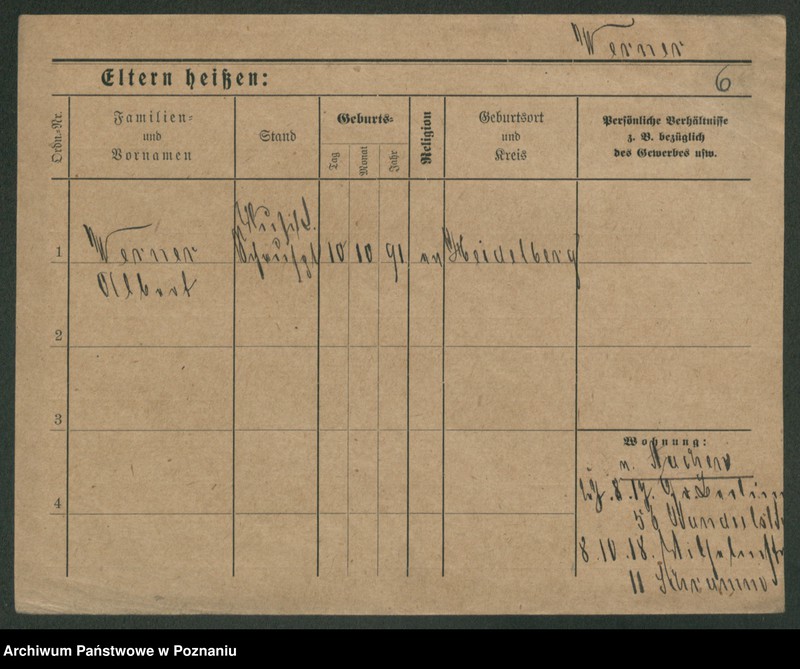 Werner
Eltern heißen:
6
Ordn.-Nr.
Familien-
und
Vornamen
Stand
Geburts-
Tag
Monat
Jahr
Religion
Geburtsort
und
Kreis
Persönliche Verhältnisse
z. B. bezüglich
des Gewerbes usw.
1
Werner
Albert
10
10
91
Heidelberg
2
3
4
Wohnung:
8.17.
8.10.18.
11
Archiwum Państwowe w Poznaniu